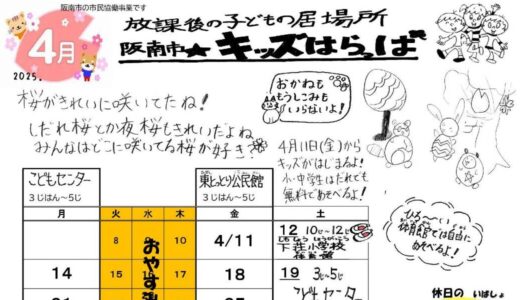 阪南市の市民協働事業です
4月
2025.
放課後の子どもの居場所
阪南市★キッズはらっぱ
桜がきれいに咲いてたね!
しだれ桜とか夜桜もきれいだよね
みんなはどこに咲いてる桜が好き?
おかねも
もうしこみも
いらないよ!
4月11日(金)から
キッズがはじまるよ!
小・中学生はだれでも
無料であそべるよ!
こどもセンター
3じはん~5じ
東とっとり公民館
3じはん~5じ
月 火 水 木 金 土
8 9 10 4/11 12 10じ~12じ
下荘小学校
体育館
おやす
14 15 17 18 19 3じ~5じ
こどもセンター
体育館では自由に
あそべるよ!
休日の いばしょ